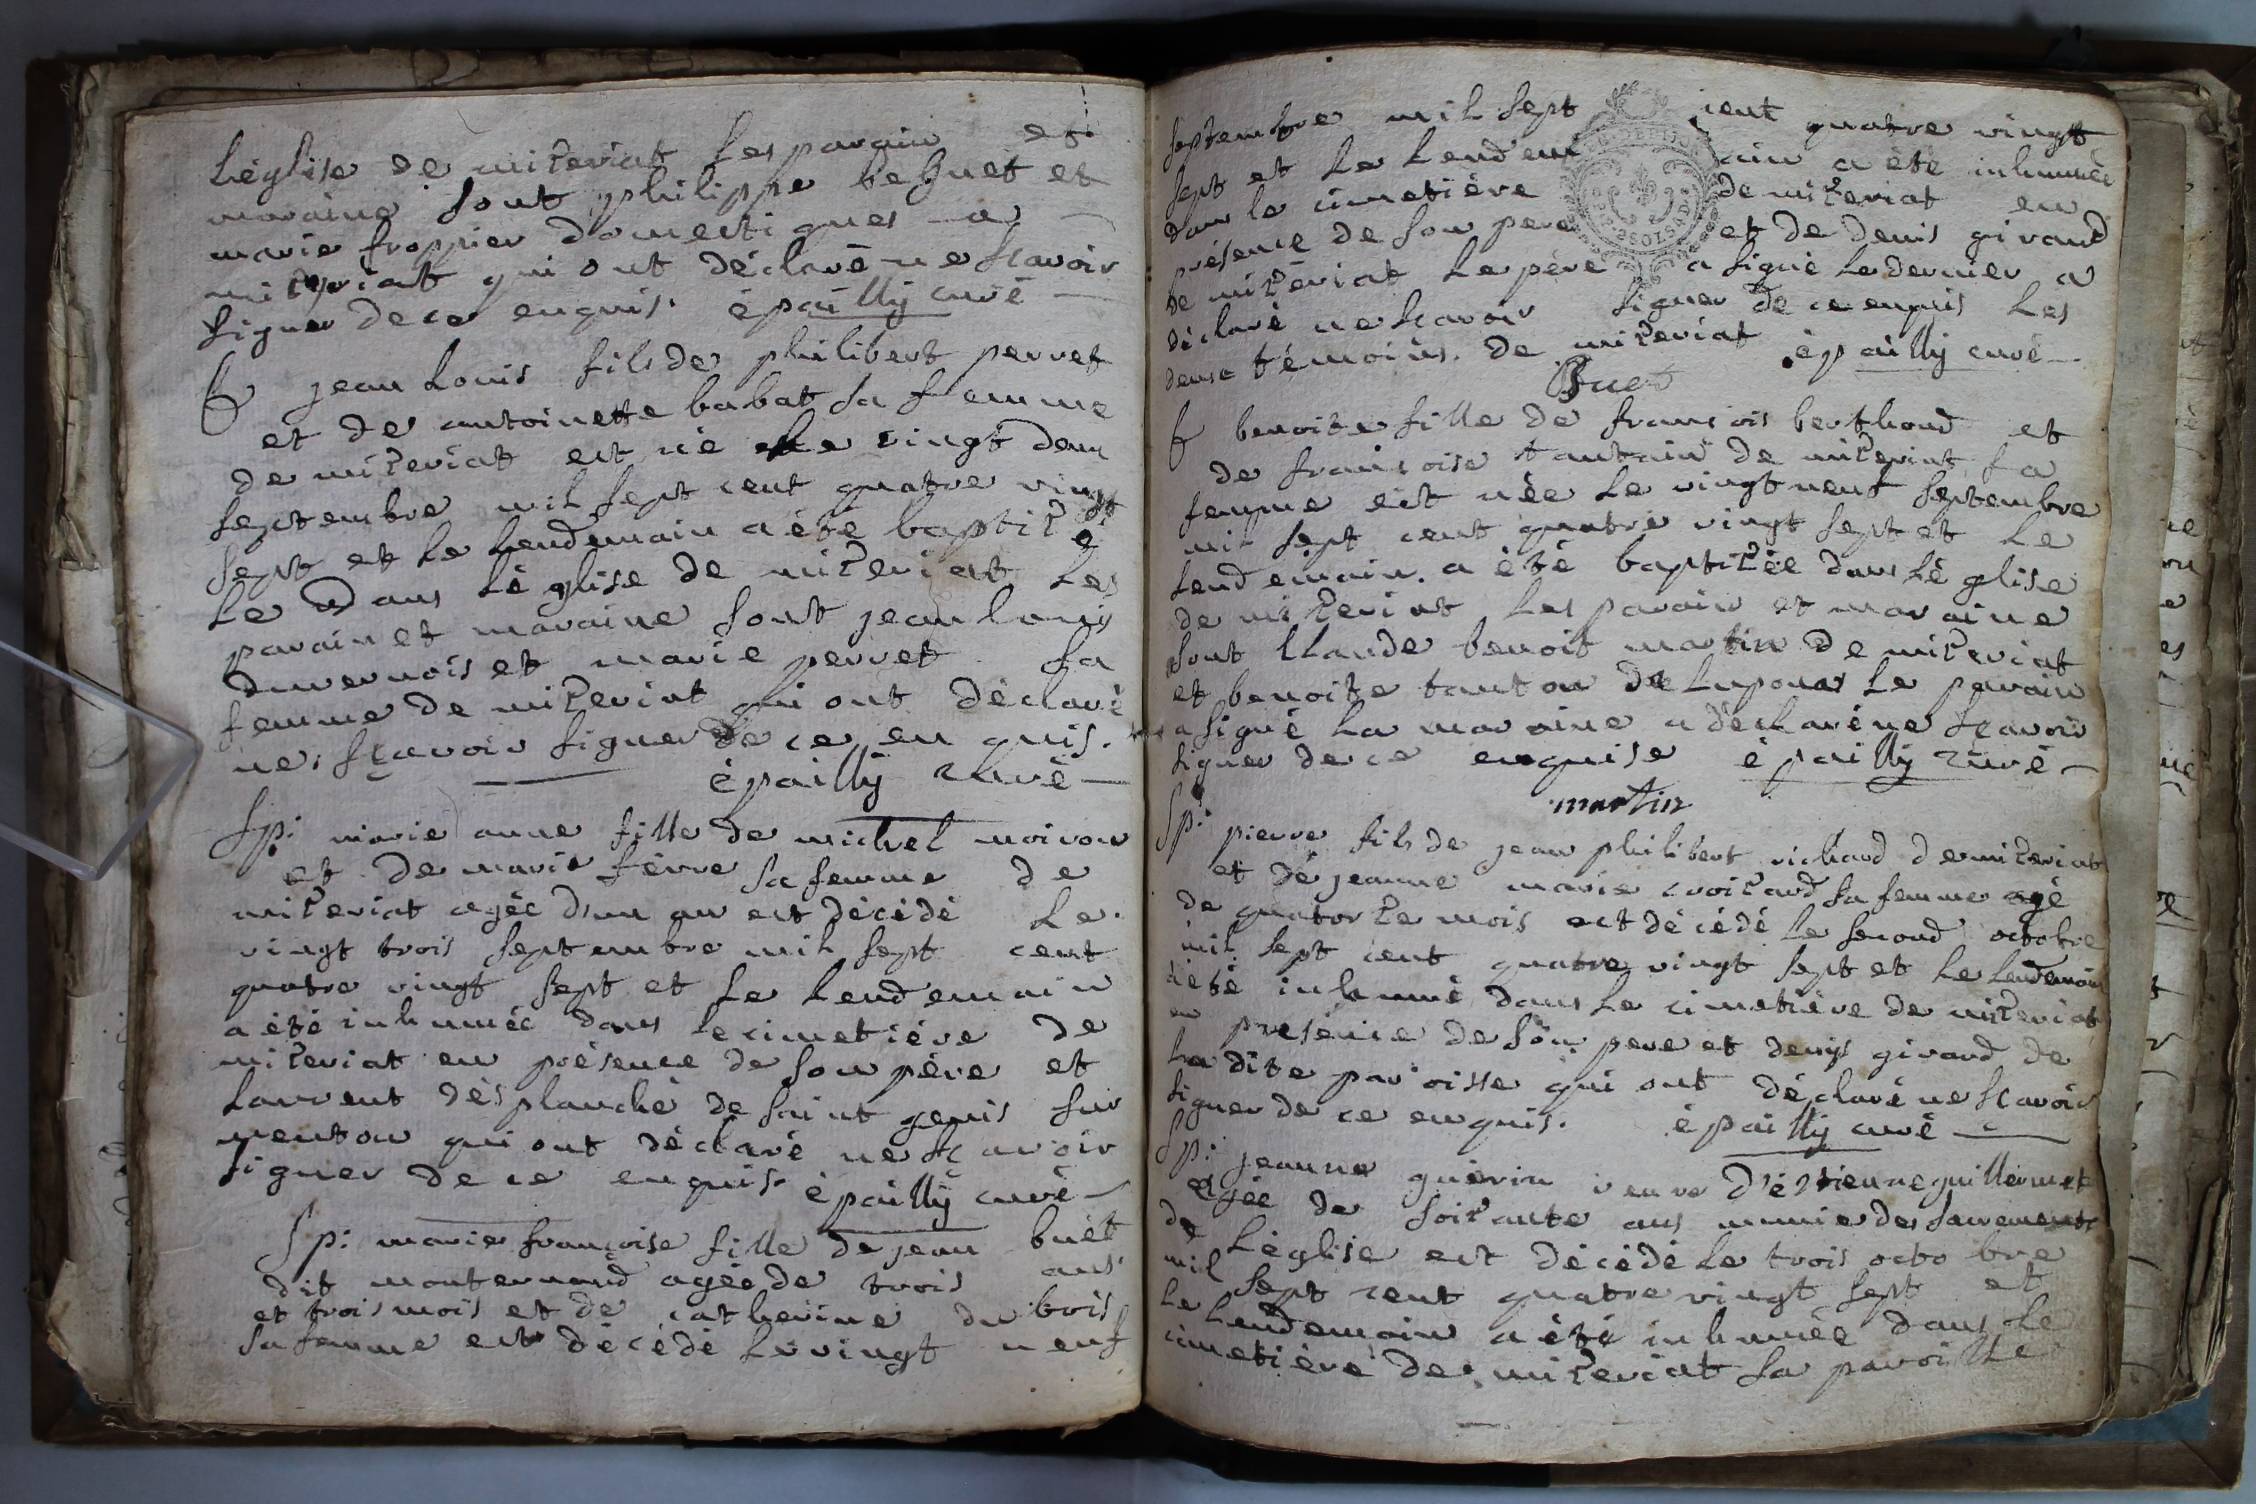 Léglise de mizeriat les parain et
maraine sont philippe beguet et
marie froppier domestiques a
mizeriat qui ont déclaré ne sçavoir
signer de ce enquis. épailly curé
B jean Louis fils de philibert perret
et de antoinette babat sa femme
de mizeriat est né le vingt deux
septembre mil sept cent quatre vingt
sept et le lendemain a été baptizé
le dans Léglise de mizeriat les
parain et maraine sont jean louis
duvernois et marie perret sa
femme de mizeriat qui ont déclaré
ne sçavoir signer de ce en quis.
épailly curé
Sp: marie anne fille de michel moiroux
et de marie févre sa femme de
mizeriat agée d'un an est décédé Le
vingt trois septembre mil sept cent
quatre vingt sept et le lendemain
a été inhumée dans le cimetiére de
mizeriat en présence de son pére et
Laurent désplanche de saint genis sur
menton qui ont déclaré ne sçavoir
signer de ce enquis. épailly curé
Sp: marie françoise fille de jean buét
dit monternaud agée de trois ans
et trois mois et de catherine du bois
sa femme est décédé le vingt neuf
septembre mil sept cent quatre vingt
sept et le lendemain a été inhumée
dans le cimetiére de mizeriat en
présence de son pere et de denis giraud
de mizériat le pére a signé le dernier a
déclaré ne sçavoir signer de ce enquis les
deux témoins. de mizeriat épailly curé
Buet
B benoite fille de françois berthoud et
de françoise tantain de mizeriat sa
femme est née le vingt neuf septembre
mil sept cent quatre vingt sept et le
lendemain. a été baptizée dans Léglise
de mizeriat les parain et maraine
sont Claude benoit martin de mizeriat
et benoite tanton de le parain
a signé la maraine a déclaré ne sçavoir
signer de ce enquise épailly curé
martin
Sp: pierre fils de jean philibert richard de mizeriat
et de jeanne marie croizard sa femme agé
de quatorze mois est décédé le second octobre
mil sept cent quatre vingt sept et le lendemain
a été inhumé dans le cimetiére de mizeriat
en présence de son pere et denys girard de
la dite paroisse qui ont déclaré ne sçavoir
signer de ce enquis. épailly curé
Sp: jeanne guérin veuve d'étienne guillermet
agée de soizante ans munie des sacrements
de Léglise est décédé le trois octobre
mil sept cent quatre vingt sept et
le lendemain a été inhumée dans le
cimetiére de mizeriat sa paroisse